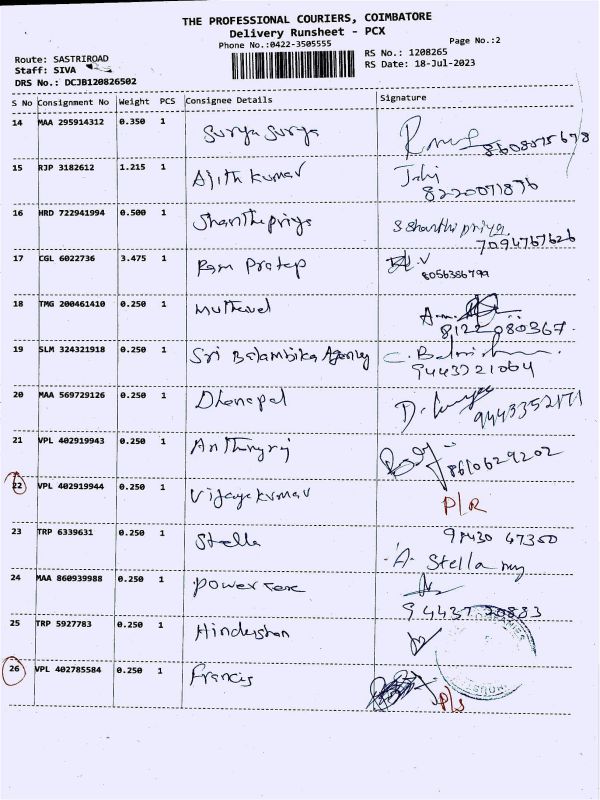 THE PROFESSIONAL COURIERS, COIMBATORE
Delivery Runsheet - PCX
Phone No.:0422-3505555
Page No.:2
Route: SASTRIROAD
Staff: SIVA
DRS No.: DCJB120826502
RS No.: 1208265
RS Date: 18-Jul-2023
S No Consignment No Weight PCS Consignee Details Signature
14 MAA 295914312 0.350 1 Surya Surya
8608075678
15 RJP 3182612 1.215 1 Ajith kumar
8220071876
16 HRD 722941994 0.500 1 Shanthipriya S Shanthi priya
7094767626
17 CGL 6022736 3.475 1 Ram Pratap
8056386799
18 TMG 200461410 0.250 1 Muthuvel
8122 080367.
19 SLM 324321918 0.250 1 Sri Balambika Agency
9443221064
20 MAA 569729126 0.250 1 Dhanapal
9443352171
21 VPL 402919943 0.250 1 Anthonyraj
8610629202
22 VPL 402919944 0.250 1 Vijayakumar P/R
23 TRP 6339631 0.250 1 Stella 98430 47350
A. Stella my
24 MAA 860939988 0.250 1 Power
9 4437 70883
25 TRP 5927783 0.250 1 Hindushan
26 VPL 402785584 0.250 1 Francis
P/S